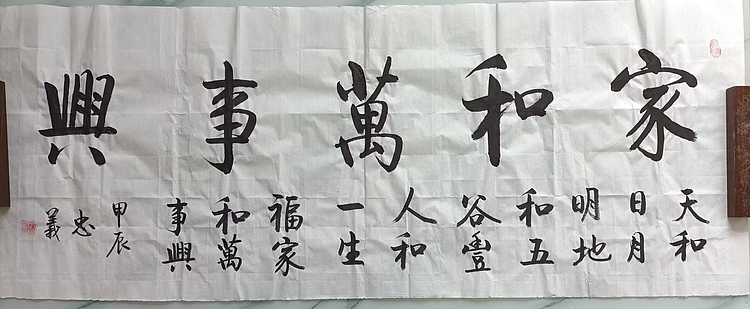 家和萬事興
天和
日月
明地
和五
谷豐
人和
一生
福家
和萬
事興
甲辰
忠
義